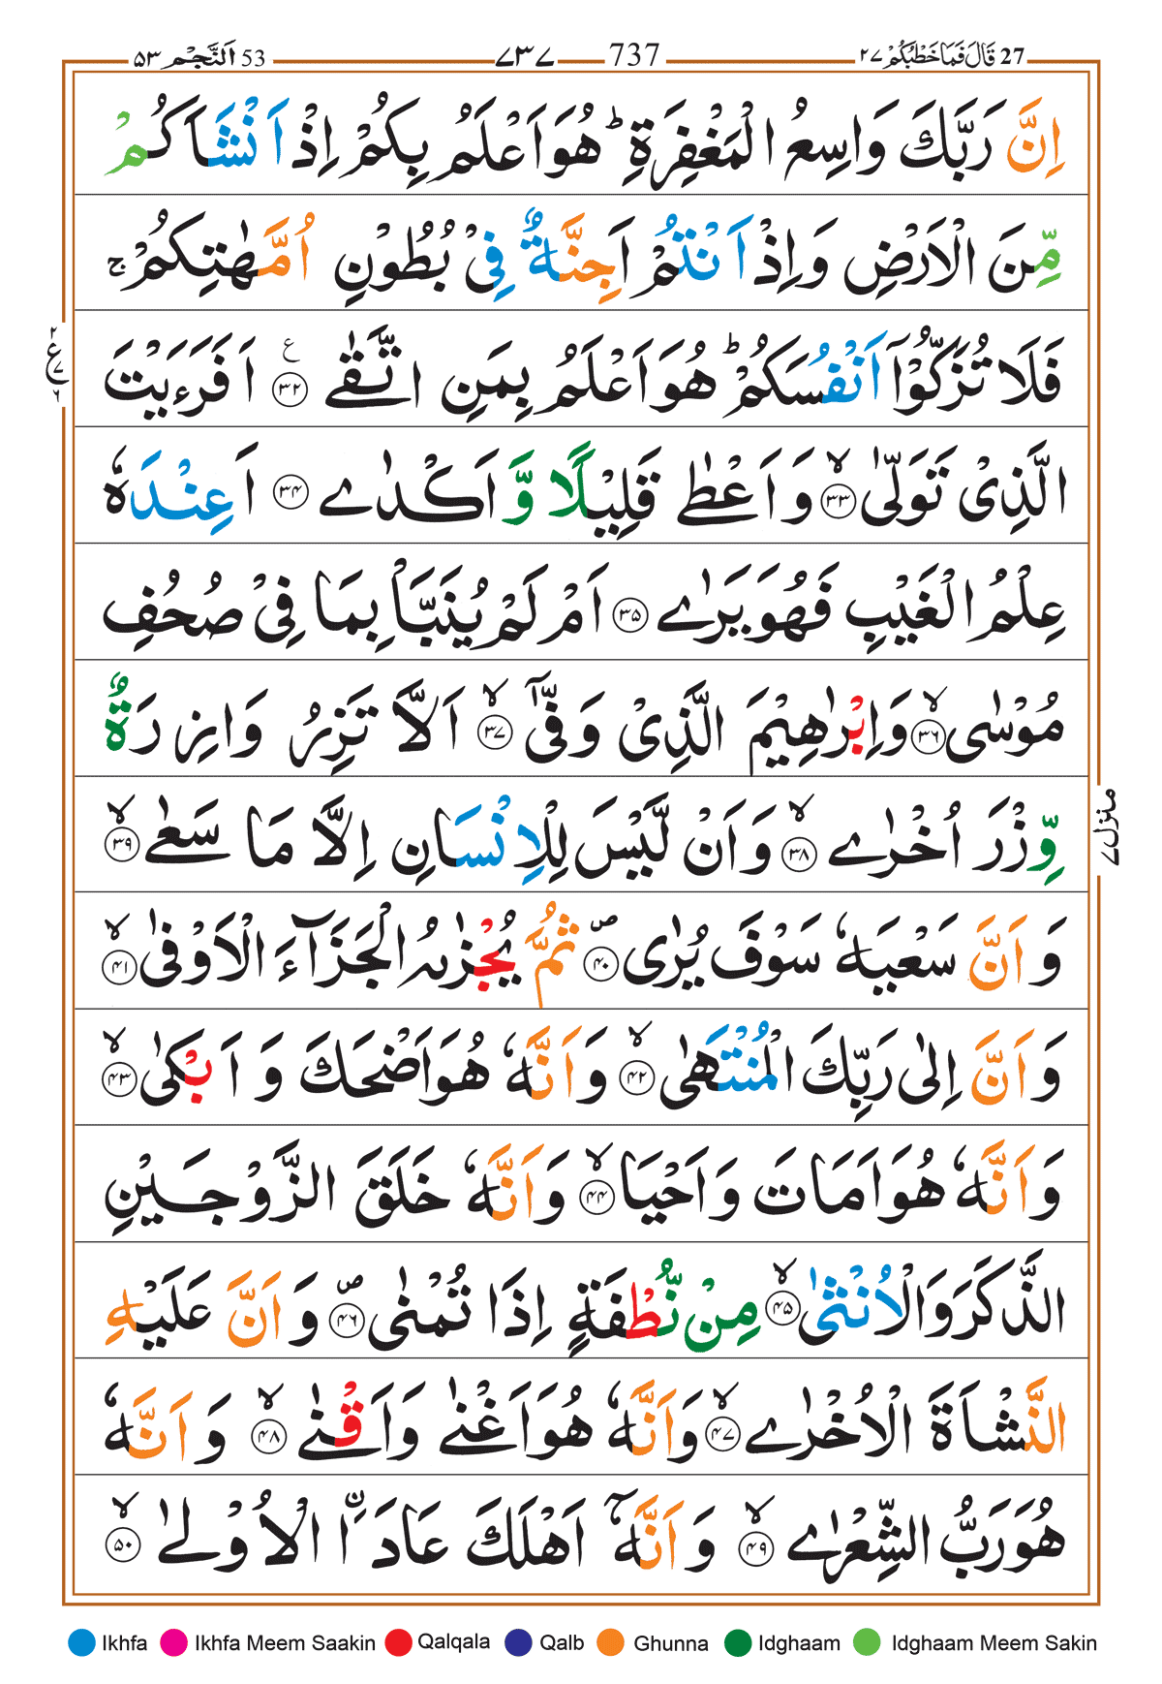 27 قَالَ فَمَا خَطْبُكُمْ ٢٧ 737 ٧٣٧ 53 اَلنَّجْم ٥٣
اِنَّ رَبَّكَ وَاسِعُ الْمَغْفِرَةِ ؕ هُوَ اَعْلَمُ بِكُمْ اِذْ اَنْشَاَكُمْ
مِّنَ الْاَرْضِ وَاِذْ اَنْتُمْ اَجِنَّةٌ فِیْ بُطُوْنِ اُمَّهٰتِكُمْ ۚ
فَلَا تُزَكُّوْۤا اَنْفُسَكُمْ ؕ هُوَ اَعْلَمُ بِمَنِ اتَّقٰی ع ٣٢ اَفَرَءَیْتَ
ع ٢ ٧ ٢
الَّذِیْ تَوَلّٰی ۙ ٣٣ وَ اَعْطٰی قَلِیْلًا وَّ اَكْدٰی ٣٤ اَعِنْدَهٗ
عِلْمُ الْغَیْبِ فَهُوَ یَرٰی ٣٥ اَمْ لَمْ یُنَبَّاْ بِمَا فِیْ صُحُفِ
مُوْسٰی ۙ ٣٦ وَاِبْرٰهِیْمَ الَّذِیْ وَفّٰۤی ۙ ٣٧ اَلَّا تَزِرُ وَازِرَةٌ
وِّزْرَ اُخْرٰی ۙ ٣٨ وَاَنْ لَّیْسَ لِلْاِنْسَانِ اِلَّا مَا سَعٰی ۙ ٣٩
منزل ٧
وَاَنَّ سَعْیَهٗ سَوْفَ یُرٰی ۪ ٤٠ ثُمَّ یُجْزٰىهُ الْجَزَآءَ الْاَوْفٰی ۙ ٤١
وَاَنَّ اِلٰی رَبِّكَ الْمُنْتَهٰی ۙ ٤٢ وَاَنَّهٗ هُوَ اَضْحَكَ وَ اَبْكٰی ۙ ٤٣
وَاَنَّهٗ هُوَ اَمَاتَ وَاَحْیَا ۙ ٤٤ وَاَنَّهٗ خَلَقَ الزَّوْجَیْنِ
الذَّكَرَ وَالْاُنْثٰی ۙ ٤٥ مِنْ نُّطْفَةٍ اِذَا تُمْنٰی ۪ ٤٦ وَاَنَّ عَلَیْهِ
النَّشْاَةَ الْاُخْرٰی ۙ ٤٧ وَاَنَّهٗ هُوَ اَغْنٰی وَاَقْنٰی ۙ ٤٨ وَاَنَّهٗ
هُوَ رَبُّ الشِّعْرٰی ۙ ٤٩ وَاَنَّهٗۤ اَهْلَكَ عَادَا ۨ الْاُوْلٰی ۙ ٥٠
Ikhfa Ikhfa Meem Saakin Qalqala Qalb Ghunna Idghaam Idghaam Meem Sakin